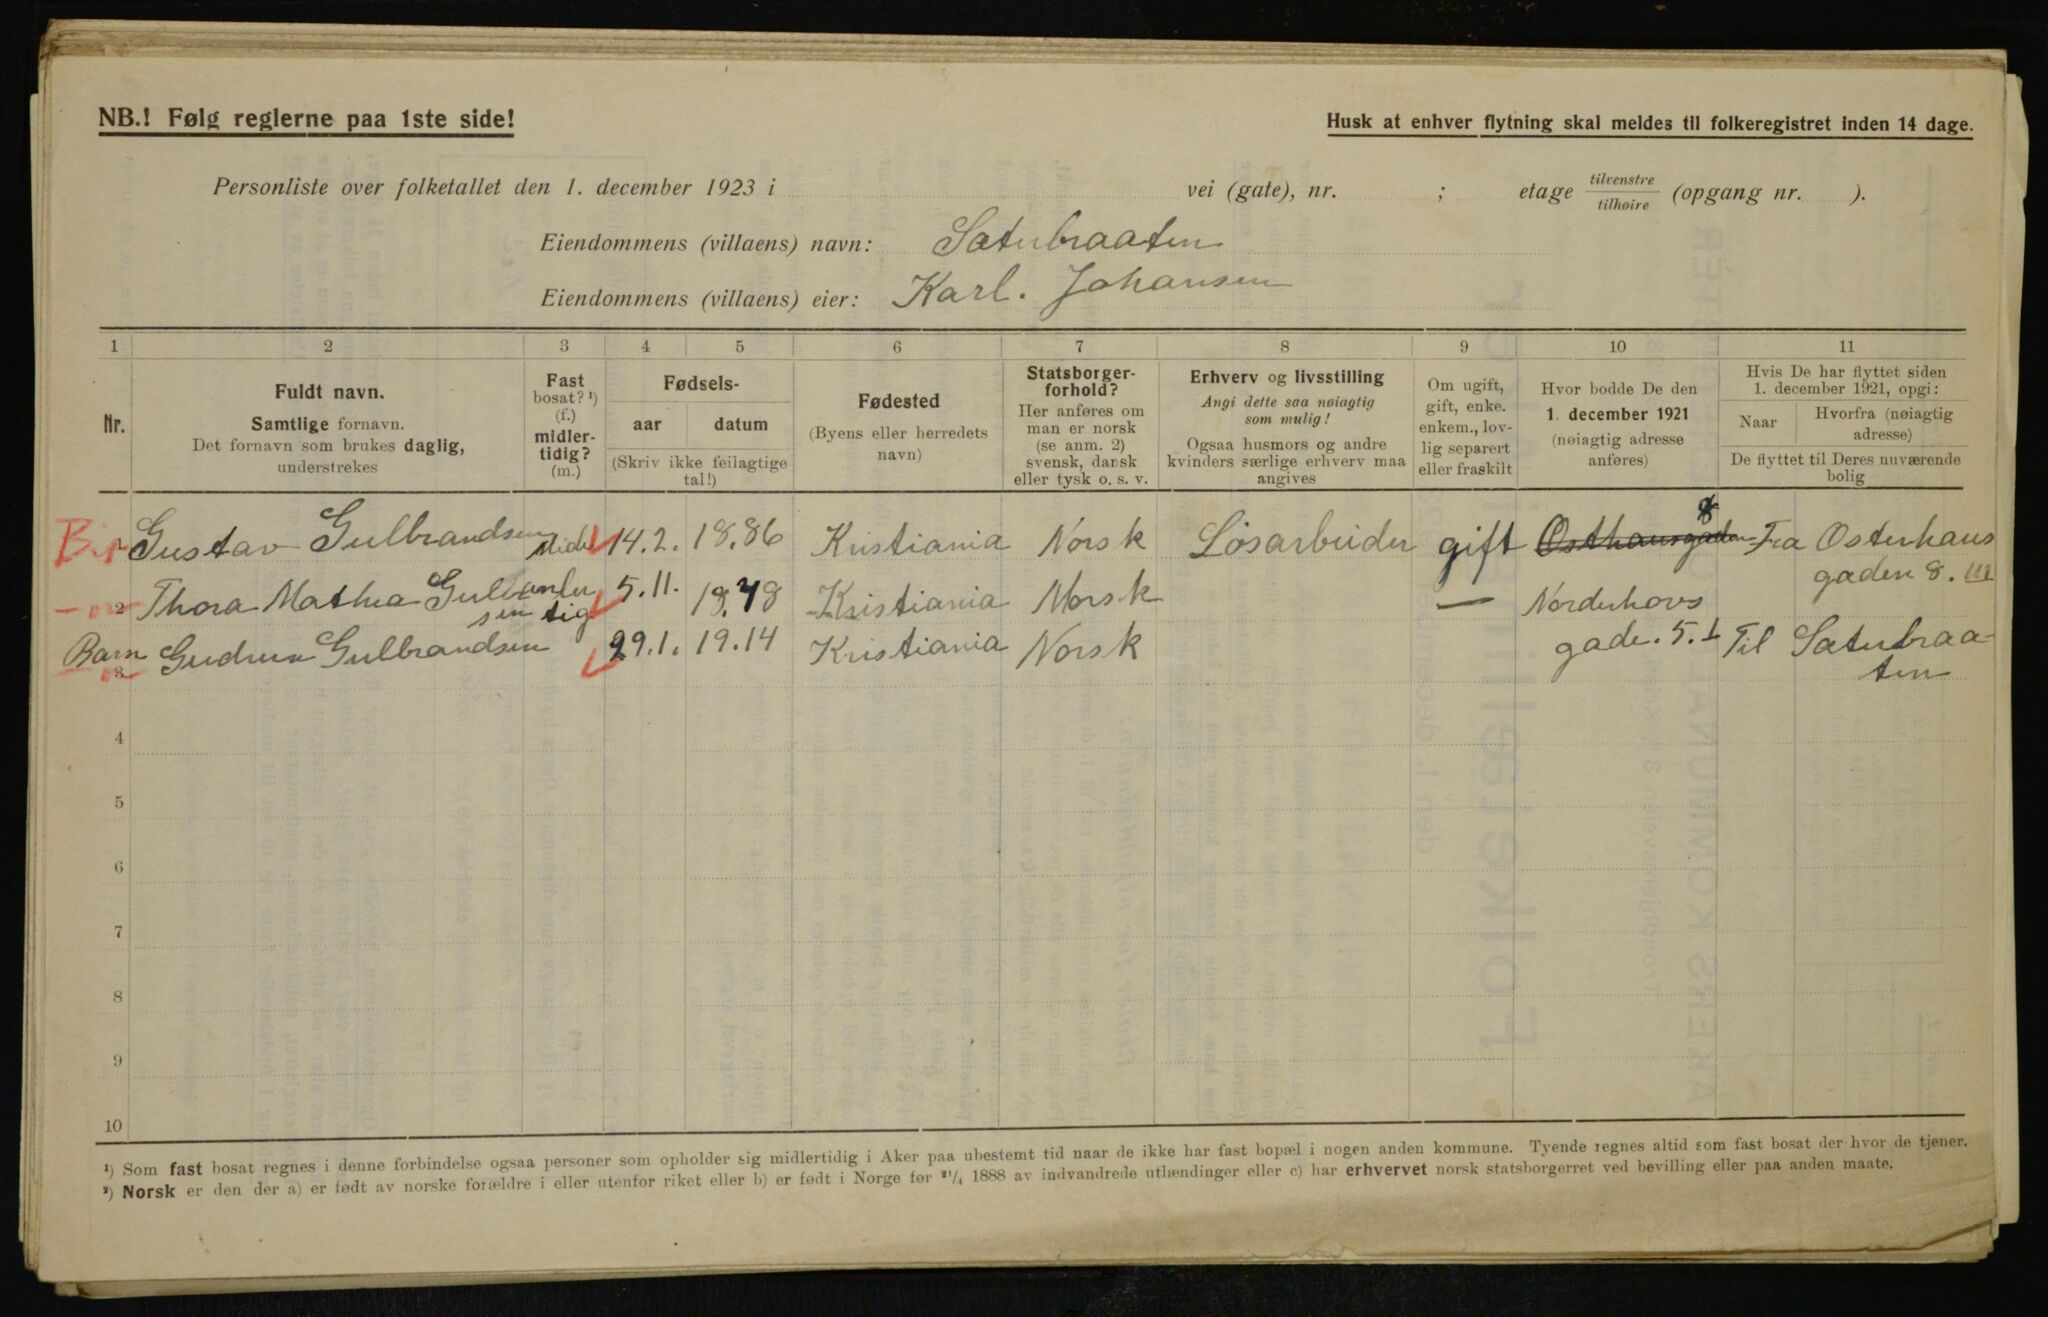 NB.! Følg reglerne paa 1ste side!
Husk at enhver flytning skal meldes til folkeregistret inden 14 dage.
Personliste over folketallet den 1. december 1923 i vei (gate), nr. ; etage tilvenstre/tilhøire (opgang nr. ).
Eiendommens (villaens) navn: Sæterbraaten
Eiendommens (villaens) eier: Karl. Johansen
1 2 3 4 5 6 7 8 9 10 11
Nr.
Fuldt navn.
Samtlige fornavn.
Det fornavn som brukes daglig,
understrekes
Fast
bosat? ¹)
(f.)
midler-
tidig?
(m.)
Fødsels-
aar datum
(Skriv ikke feilagtige
tal!)
Fødested
(Byens eller herredets
navn)
Statsborger-
forhold?
Her anføres om
man er norsk
(se anm. 2)
svensk, dansk
eller tysk o. s. v.
Erhverv og livsstilling
Angi dette saa nøiagtig
som mulig!
Ogsaa husmors og andre
kvinders særlige erhverv maa
angives
Om ugift,
gift, enke.
enkem., lov-
lig separert
eller fraskilt
Hvor bodde De den
1. december 1921
(nøiagtig adresse
anføres)
Hvis De har flyttet siden
1. december 1921, opgi:
Naar Hvorfra (nøiagtig
adresse)
De flyttet til Deres nuværende
bolig
Gustav Gulbrandsen 14.2. 18.86 Kristiania Norsk Løsarbeider gift Osthausgaden 8 Fra Osterhaus
gaden 8. III
2 Thora Mathea Gulbrand
sen tig 5.11. 18.78 Kristiania Norsk — Norderhovs
gade. 5. I
Barn 3 Gudrun Gulbrandsen 29.1. 19.14 Kristiania Norsk Til Sæterbraa-
ten
4
5
6
7
8
9
10
¹) Som fast bosat regnes i denne forbindelse ogsaa personer som opholder sig midlertidig i Aker paa ubestemt tid naar de ikke har fast bopæl i nogen anden kommune. Tyende regnes altid som fast bosat der hvor de tjener.
²) Norsk er den der a) er født av norske forældre i eller utenfor riket eller b) er født i Norge før ²¹/₄ 1888 av indvandrede utlændinger eller c) har erhvervet norsk statsborgerret ved bevilling eller paa anden maate.